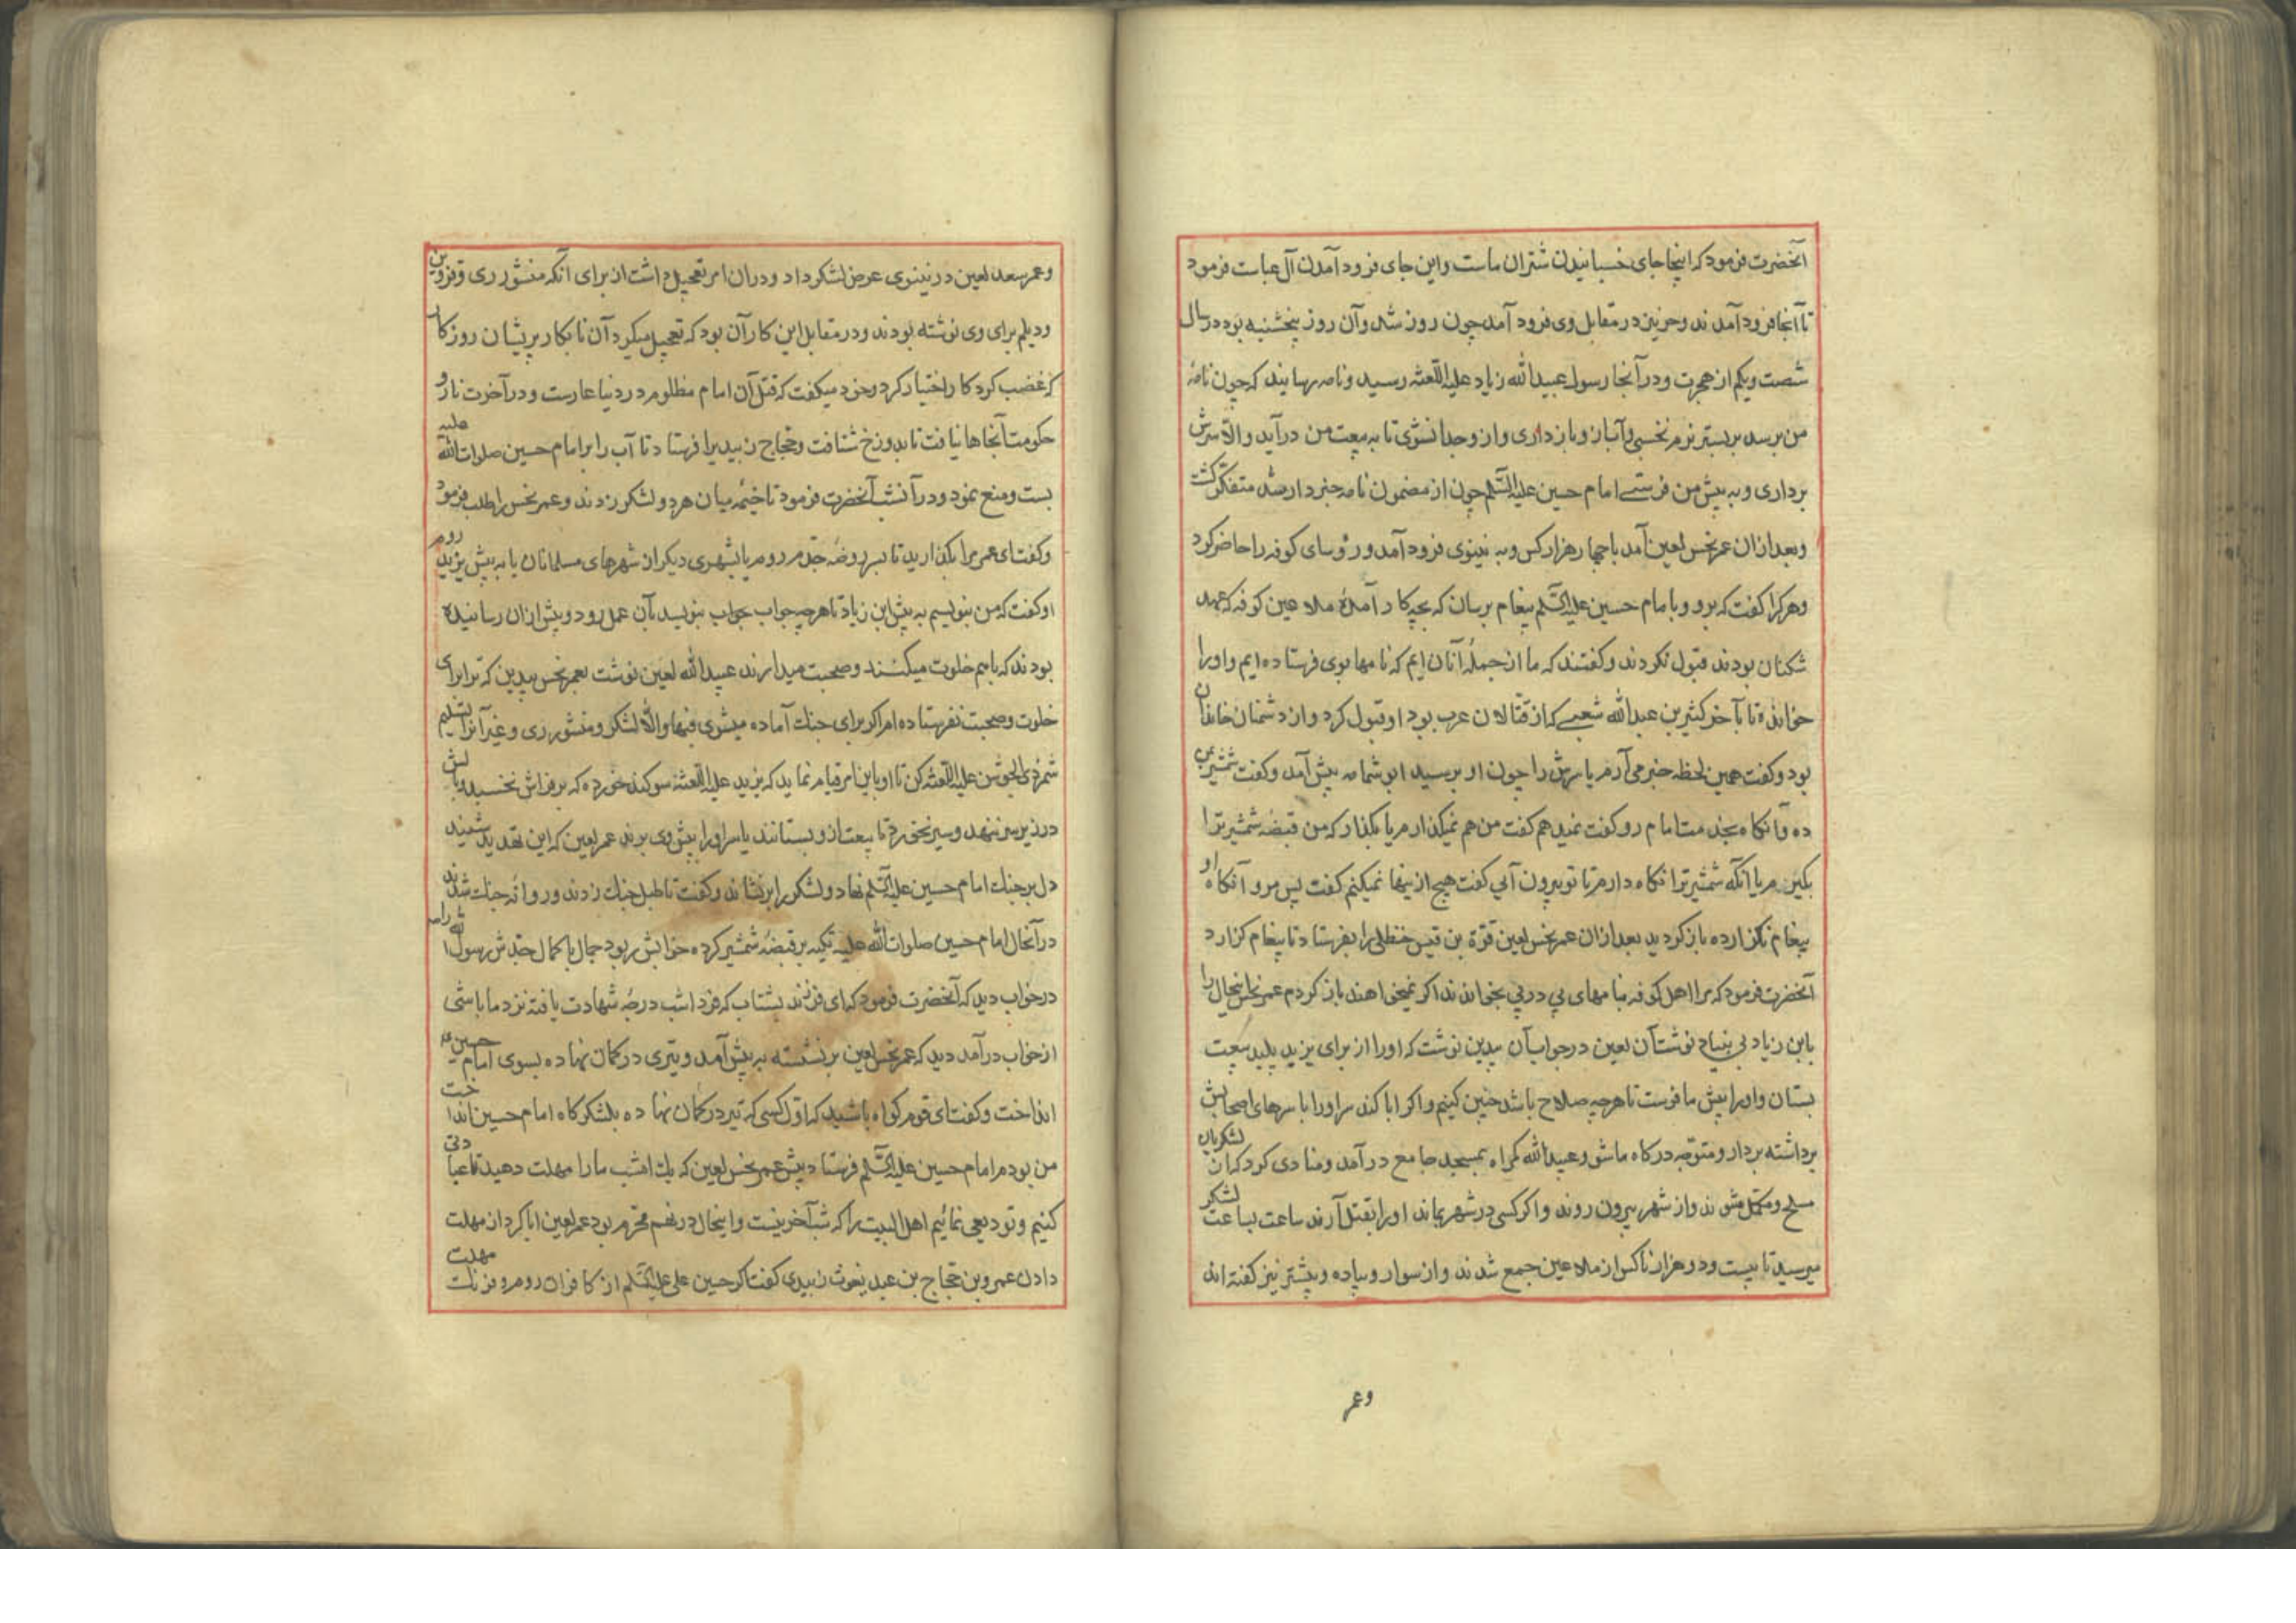 آنحضرت فرمود که اینجا جای خسبانیدن شتران ماست واین جای فرود آمدن آل عباست فرمود
تا آنجا فرود آمدند وحر نیز در مقابل وی فرود آمد چون روز شد وآن روز پنجشنبه بود در سال
شصت ویکم از هجرت ودر آنجا رسول عبیدالله زیاد علیه اللعنه رسید ونامه رسانید که چون نامهٔ
من برسد بر بستر نرم نخسبی وآنبار وباز داری واز وجدا نشوی تا به بیعت من درآید والا سرش
برداری وبه پیش من فرستی امام حسین علیه السلم چون از مضمون نامه خبردار شد متفکر کشت
وبعد ازان عمر نحس لعین آمد با چهار هزار کس وبه نینوی فرود آمد ورؤسای کوفه را حاضر کرد
وهر کرا کفت که برو وبا مام حسین علیه السلم پیغام برسان که بچه کار آمدهٔ ملاعین کوفه که عهد
شکنان بودند قبول نکردند وکفتند که ما از جملهٔ آنان ایم که نامها بوی فرستاده ایم واورا
خوانده تا بآخر کثیر بن عبدالله شعبی که از قتالان عرب بود او قبول کرد واز دشمنان خاندان
بود وکفت همین لحظه خبر می آرم یا سرش را چون او برسید ابو ثمامه پیش آمد وکفت شمشیر بمن
ده وآنکاه بخدمت امام رو کفت نمیدهم کفت من هم نمیکذارم یا بکذار که من قبضهٔ شمشیر ترا
بکیرم یا آنکه شمشیر ترا نکاه دارم تا تو بیرون آئی کفت هیچ ازینها نمیکنم کفت پس مرو آنکاه او
پیغام نکزارده باز کردید بعد ازان عمر نحس لعین قرة بن قیس حنظلی را بفرستاد تا پیغام کزارد
آنحضرت فرمود که مرا اهل کوفه بنامهای پی در پی بخواندند اکر نمیخواهند باز کردم عمر نحس اینحال را
بابن زیاد بی بنیاد نوشت آن لعین در جواب آن بیدین نوشت که اورا از برای یزید پلید بیعت
بستان واورا پیش ما فرست تا هرچه صلاح باشد چنین کنیم واکر ابا کند سر اورا با سرهای اصحابش
برداشته بردار ومتوجه درکاه ما شو وعبیدالله کمراه بمسجد جامع درآمد ومنادی کرد که آن لشکریان
مسلح ومکمل شوند واز شهر بیرون روند واکر کسی در شهر بماند اورا بقتل آرند ساعت بساعت لشکر
میرسید تا بیست ودو هزار ناکس از ملاعین جمع شدند واز سوار وپیاده وبیشتر نیز کفته اند
وعمر
وعمر سعد لعین در نینوی عرض لشکر داد ودران امر تعجیل داشت از برای آنکه منشور ری وقزوین
ودیلم برای وی نوشته بودند ودر مقابل این کار آن بود که تعجیل میکرد آن نابکار پریشان روزکار
غضب کرد کار اختیار کرد وخود میکفت که قتل آن امام مظلوم در دنیا عارست ودر آخرت نار و
حکومت آنجاها نیافت تا بدوزخ شتافت وحجاج زبیدی را فرستاد تا آب را بر امام حسین صلوات الله علیه
بست ومنع نمود ودر آنشب آنحضرت فرمود تا خیمه میان هر دو لشکر زدند وعمر نحس را طلب فرمود
وکفت ای عمر مرا بکذارید تا بسر روضهٔ جدم روم یا بشهری دیکر از شهرهای مسلمانان یا به پیش یزید روم
او کفت که من بنویسم به پیش ابن زیاد تا هرچه جواب بنویسد بآن عمل رود وپیش ازان رسانیده
بودند که باهم خلوت میکنند وصحبت میدارند عبیدالله لعین نوشت بعمر نحس بیدین که ترا برای
خلوت وصحبت نفرستاده ام اکر برای جنك آماده میشوی فبها والا لشکر ومنشور ری وغیر آنرا تسلیم
شمر ذی الجوشن علیه اللعنه کن تا او باین امر قیام نماید که یزید علیه اللعنه سوکند خورده که بر فراش نخسبد وبالش
در زیر سر ننهد وسیر نخورد تا بیعت از و بستانند یا سر اورا پیش وی برند عمر لعین که این تهدید شنید
دل بر جنك امام حسین علیه السلم نهاد ولشکر را برنشاند وکفت تا طبل جنك زدند وروانهٔ جنك شدند
در آنحال امام حسین صلوات الله علیه تکیه بر قبضهٔ شمشیر کرده خوابش ربود جمال با کمال جدش رسول الله را
در خواب دید که آنحضرت فرمود که ای فرزند بشتاب که فردا شب درجهٔ شهادت یافته نزد ما باشی
از خواب درآمد دید که عمر نحس لعین بر نشسته به پیش آمد وتیری در کمان نهاده بسوی امام حسین ع
انداخت وکفت ای قوم کواه باشید که اول کسی که تیر در کمان نهاده بلشکرکاه امام حسین انداخت
من بودم امام حسین علیه السلم فرستاد پیش عمر نحس لعین که یك امشب مارا مهلت دهید تا عبادتی
کنیم وتودیعی نمائیم اهل البیت را که شب آخرینست واینحال در نهم محرم بود عمر لعین ابا کرد از مهلت
دادن عمرو بن حجاج بن عبد یغوث زبیدی کفت کر حسین علی علیه السلم از کافران روم وفرنك مهلت